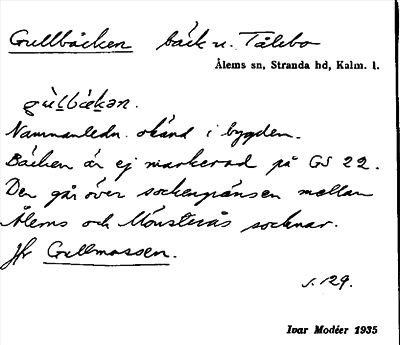 Gullbäcken bäck n. Tålebo
Ålems sn, Stranda hd, Kalm. l.
gùl̲bækən.
Namnanledn. okänd i bygden.
Bäcken är ej markerad på GS 22.
Den går över sockengränsen mellan
Ålems och Mönsterås socknar.
Jfr Gullmossen.
s. 129.
Ivar Modéer 1935